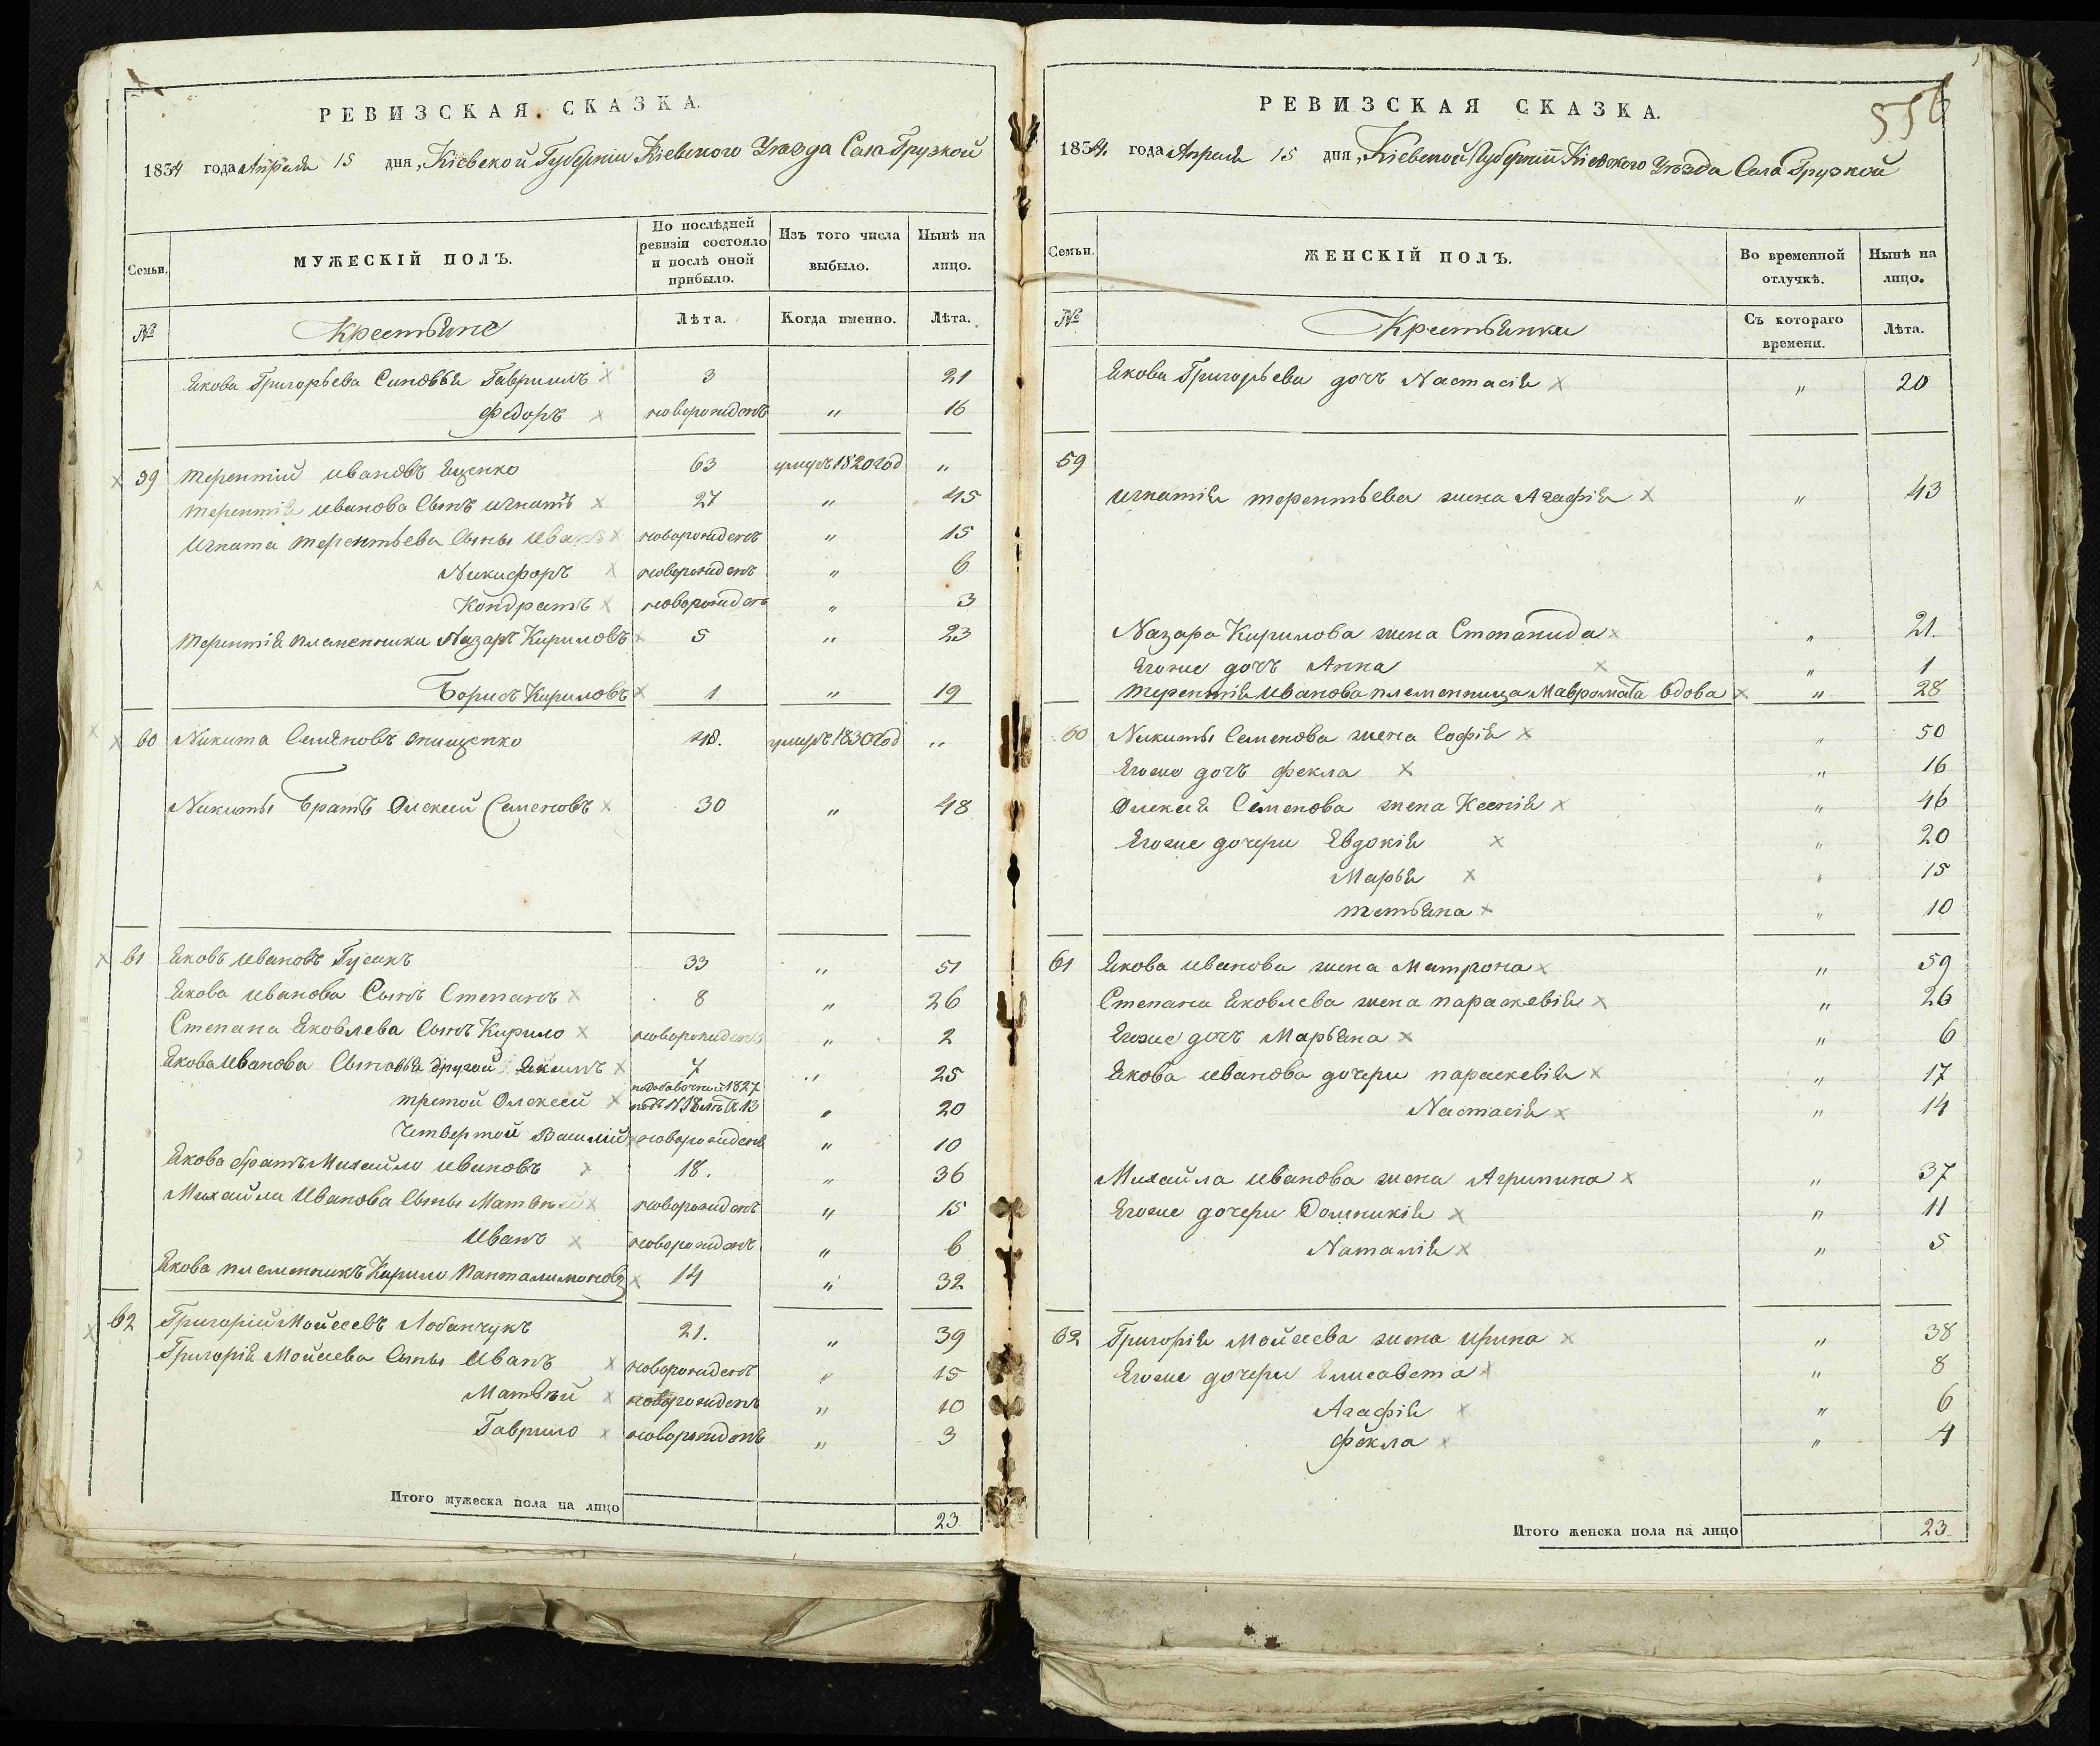 РЕВИЗСКАЯ СКАЗКА.
1834 года Апреля 15 дня, Кіевской Губерніи Кіевского Уезда Села Грузкой
Семьи.
МУЖЕСКІЙ ПОЛЪ.
По послѣдней ревизіи состояло и послѣ оной прибыло.
Изъ того числа выбыло.
Нынѣ на лицо.
№ Крестьяне Лѣта. Когда именно. Лѣта.
Якова Григорьева Синовья Гаврилъ 3 21
Федоръ новорожденъ " 16
59 Терентий Ивановъ Ященко 63 умеръ 1820 год "
Терентія Иванова Сынъ Игнатъ 27 " 45
Игната Терентьева Сыны Иванъ новорожденъ " 15
Никифоръ новорожденъ " 6
Кондратъ новорожденъ " 3
Терентія племенники Назаръ Кириловъ 5 " 23
Борисъ Кириловъ 1 " 19
60 Никита Семеновъ Онищенко 48. умеръ 1830 год "
Никиты Братъ Олексей Семеновъ 30 " 48
61 Яковъ Ивановъ Гусакъ 33 " 51
Якова Иванова Сынъ Степанъ 8 " 26
Степана Яковлева Сынъ Кирило новорожденъ " 2
Якова Иванова Сыновья другой Якимъ 7 " 25
третой Олексей 1827 13 " 20
Четвертой Василій новорожденъ " 10
Якова братъ Михайло Ивановъ 18. " 36
Михайла Иванова Сыны Матвей новорожденъ " 15
Иванъ новорожденъ " 6
Якова племенникъ Кирило Панталимоновъ 14 " 32
62 Григорій Мойсеевъ Лобанчукъ 21. " 39
Григорія Мойсеева Сыны Иванъ новорожденъ " 15
Матвѣй новорожденъ " 10
Гаврило новорожденъ " 3
Итого мужеска пола на лицо 23
556
РЕВИЗСКАЯ СКАЗКА.
1834. года Апреля 15 дня, Кіевской Губерніи Кіевского Уезда Села Грузкой
Семьи.
ЖЕНСКІЙ ПОЛЪ.
Во временной отлучкѣ.
Нынѣ на лицо.
№ Крестьянки Съ котораго времени. Лѣта.
Якова Григорьева дочъ Настасія " 20
59
Игнатія Терентьева жена Агафія " 43
Назара Кирилова жена Степанида " 21.
Егоже дочъ Анна " 1
Терентія Иванова племенница вдова " 28
60 Никиты Семенова жена Софія " 50
Егоже дочъ Фекла " 16
Олексія Семенова жена Ксенія " 46
Егоже дочери Евдокія " 20
Марья " 15
Тетьяна " 10
61 Якова Иванова жена Матрона " 59
Степана Яковлева жена Параскевія " 26
Егоже дочъ Марьяна " 6
Якова Иванова дочери Параскевія " 17
Настасія " 14
Михайла Иванова жена Агрипина " 37
Егоже дочери Домникія " 11
Наталія " 5
62 Григорія Мойсеева жена Ирина " 38
Егоже дочери Елисавета " 8
Агафія " 6
Фекла " 4
Итого женска пола на лицо 23